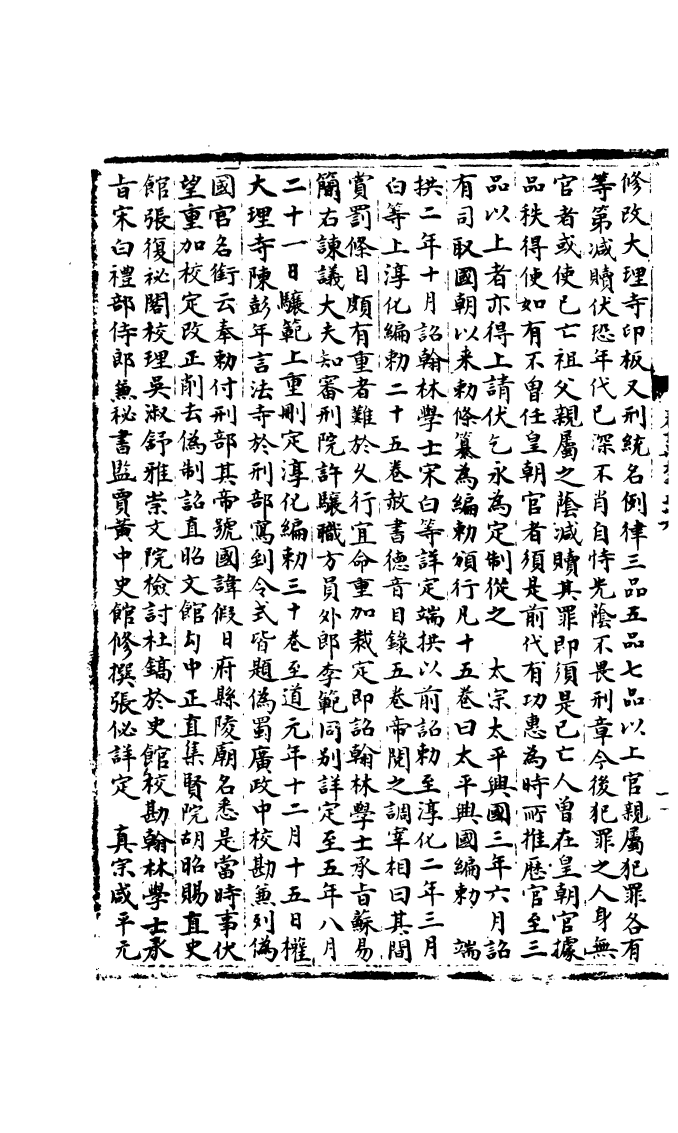 修改大理寺印板又刑統名例律三品五品七品以上官親屬犯罪各有
等第減贖伏恐年代已深不肖自恃先陰不畏刑章今後犯罪之人身無
官者或使已亡祖父親屬之蔭減贖其罪即須是已亡人曾在皇朝官據
品秩得使如有不曾任皇朝官者須是前代有功惠為時所推歷官至三
品以上者亦得上請伏乞永為定制從之　太宗太平興國三年六月詔
有司取國朝以来勅條纂為編勅頒行凡十五卷曰太平興國編勅　端
拱二年十月詔翰林學士宋白等詳定端拱以前詔勅至淳化二年三月
白等上淳化編勅二十五卷赦書德音目錄五卷帝閱之謂宰相曰其間
賞罰條目頗有重者難於久行宜命重加裁定即詔翰林學士承旨蘇易
簡右諫議大夫知審刑院許驤職方員外郎李範同別詳定至五年八月
二十一日驤範上重刪定淳化編勅三十卷至道元年十二月十五日權
大理寺陳彭年言法寺於刑部寫到令式皆題偽蜀廣政中校勘兼列偽
國官名銜云奉勅付刑部其帝號國諱假日府縣陵廟名悉是當時事伏
望重加校定改正削去偽制詔直昭文館勾中正直集賢院胡昭賜直史
館張復祕閣校理吳淑舒雅崇文院檢討杜鎬於史館校勘翰林學士承
旨宋白禮部侍郎兼秘書監賈黃中史館修撰張佖詳定　真宗咸平元